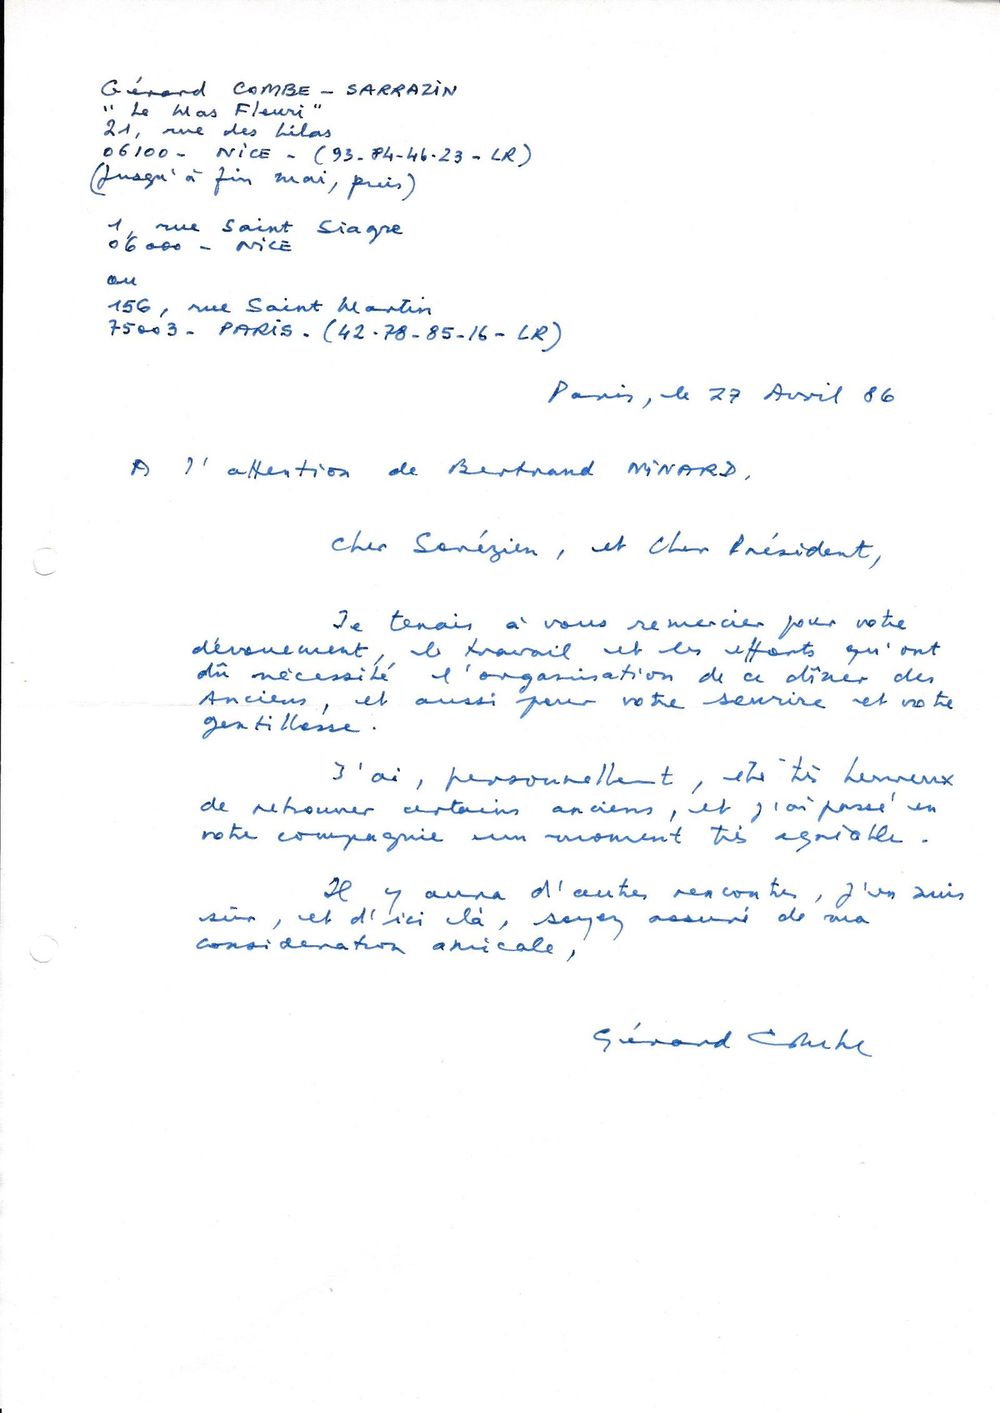 Gérard COMBE - SARRAZIN
"Le Mas Fleuri"
21, rue des Lilas
06100 - NICE - (93-84-46-23 - LR)
(Jusqu'à fin mai, puis)
1, rue Saint Siagre
06000 - NICE
ou
156, rue Saint Martin
75003 - PARIS - (42-78-85-16 - LR)
Paris, le 27 Avril 86
A l'attention de Bertrand NINARD,
Cher Sorézien, et Cher Président,
Je tenais à vous remercier pour votre
dévouement, le travail et les efforts qu'ont
dû nécessité l'organisation de ce dîner des
Anciens, et aussi pour votre sourire et votre
gentillesse.
J'ai, personnellement, été très heureux
de retrouver certains anciens, et j'ai passé en
votre compagnie un moment très agréable.
Il y aura d'autres rencontres, j'en suis
sûr, et d'ici là, soyez assuré de ma
considération amicale,
Gérard Combe